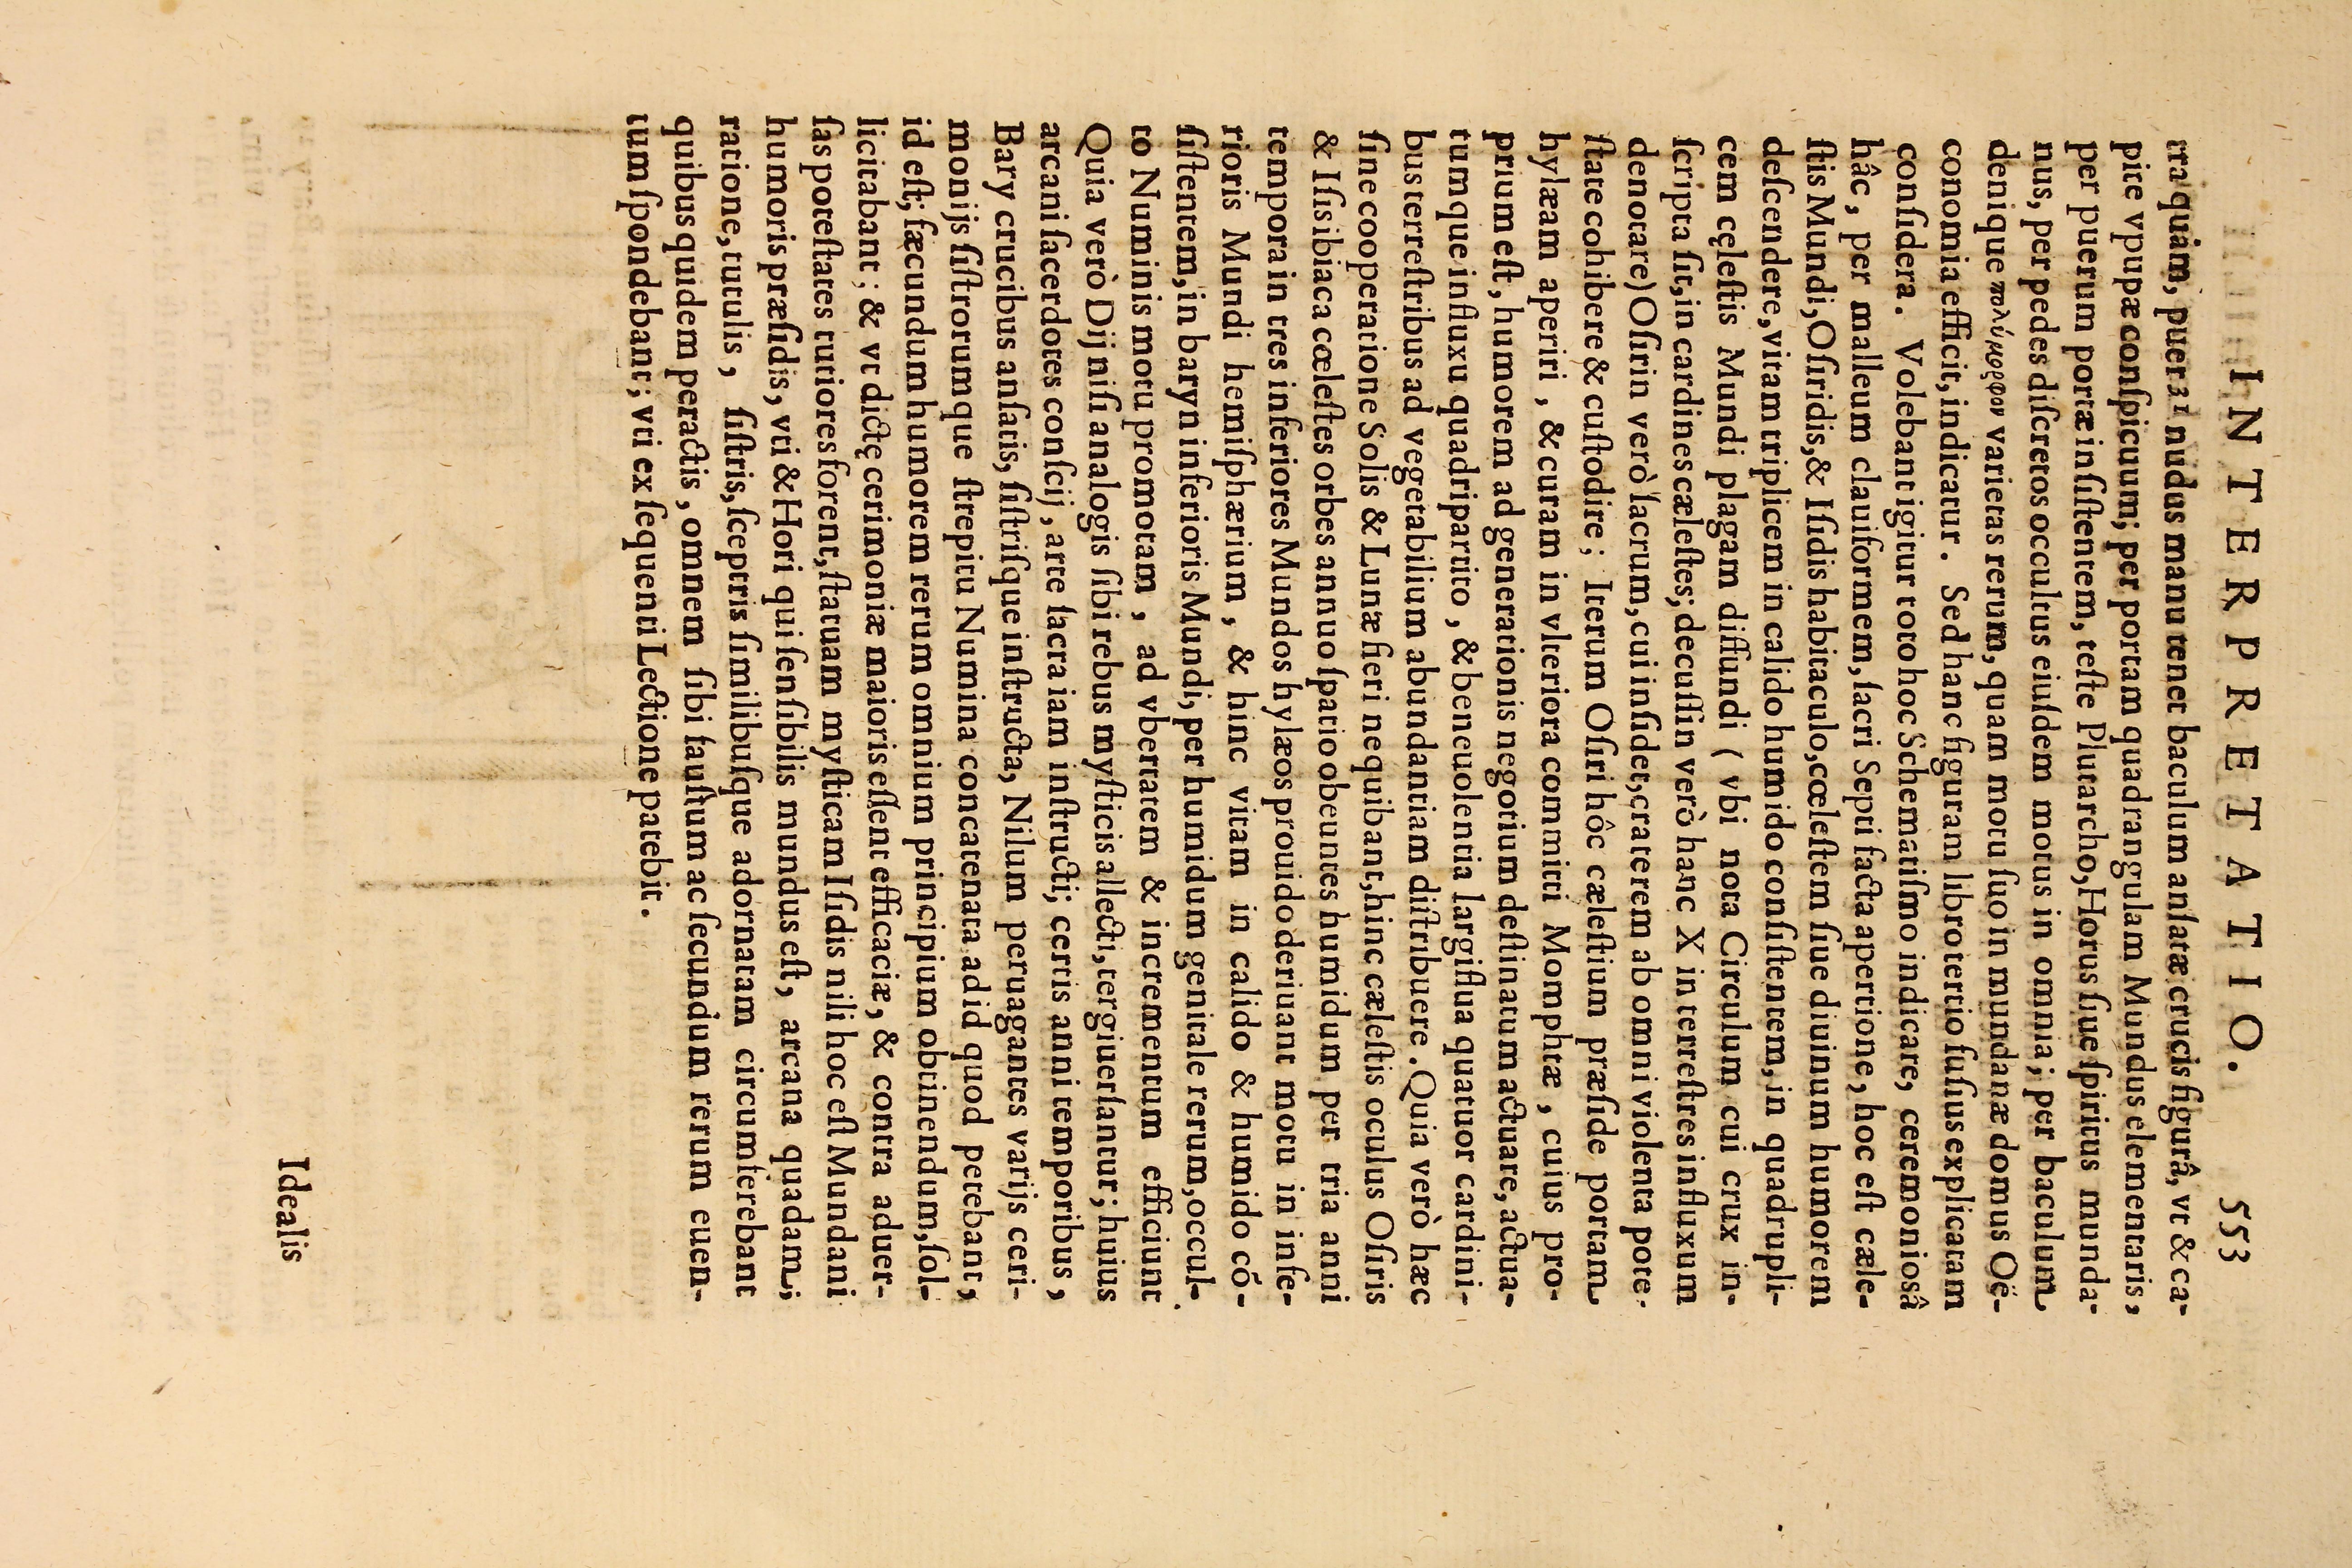 INTERPRETATIO. 553
tra quàm, puer 31 nudus manu tenet baculum anſatæ crucis figurâ, vt & ca-
pite vpupæ conſpicuum; per portam quadrangulam Mundus elementaris,
per puerum portæ inſiſtentem, teſte Plutarcho, Horus ſiue ſpiritus munda-
nus, per pedes diſcretos occultus eiuſdem motus in omnia; per baculum
denique πολύμορφον varietas rerum, quam motu ſuo in mundanæ domus Oë-
conomia efficit, indicatur. Sed hanc figuram libro tertio fuſius explicatam
conſidera. Volebant igitur toto hoc Schematiſmo indicare, ceremonioſâ
hâc, per malleum clauiformem, ſacri Septi facta apertione, hoc eſt cæle-
ſtis Mundi, Oſiridis, & Iſidis habitaculo, cœleſtem ſiue diuinum humorem
deſcendere, vitam triplicem in calido humido conſiſtentem, in quadrupli-
cem cęleſtis Mundi plagam diffundi ( vbi nota Circulum cui crux in-
ſcripta ſit, in cardines cæleſtes; decuſſin verò hanc X in terreſtres influxum
denotare) Oſirin verò ſacrum, cui inſidet, craterem ab omni violenta pote-
ſtate cohibere & cuſtodire; Iterum Oſiri hôc cæleſtium præſide portam
hylæam aperiri, & curam in vlteriora committi Momphtæ, cuius pro-
prium eſt, humorem ad generationis negotium deſtinatum actuare, actua-
tumque influxu quadripartito, & beneuolentia largiflua quatuor cardini-
bus terreſtribus ad vegetabilium abundantiam diſtribuere. Quia verò hæc
ſine cooperatione Solis & Lunæ fieri nequibant, hinc cæleſtis oculus Oſiris
& Iſis ibiaca cœleſtes orbes annuo ſpatio obeuntes humidum per tria anni
tempora in tres inferiores Mundos hylæos prouido deriuant motu in infe-
rioris Mundi hemiſphærium, & hinc vitam in calido & humido cõ-
ſiſtentem, in baryn inferioris Mundi, per humidum genitale rerum, occul-
to Numinis motu promotam, ad vbertatem & incrementum efficiunt
Quia verò Dij niſi analogis ſibi rebus myſticis allecti, tergiuerſantur; huius
arcani ſacerdotes conſcij, arte ſacra iam inſtructi; certis anni temporibus,
Bary crucibus anſatis, ſiſtriſque inſtructa, Nilum peruagantes varijs ceri-
monijs ſiſtrorumque ſtrepitu Numina concatenata ad id quod petebant,
id eſt; fæcundum humorem rerum omnium principium obtinendum, ſol-
licitabant; & vt dictę cerimoniæ maioris eſſent efficaciæ, & contra aduer-
ſas poteſtates tutiores forent, ſtatuam myſticam Iſidis nili hoc eſt Mundani
humoris præſidis, vti & Hori qui ſenſibilis mundus eſt, arcana quadam;
ratione, tutulis, ſiſtris, ſceptris ſimilibuſque adornatam circumferebant
quibus quidem peractis, omnem ſibi fauſtum ac ſecundum rerum euen-
tum ſpondebant; vti ex ſequenti Lectione patebit.
Idealis